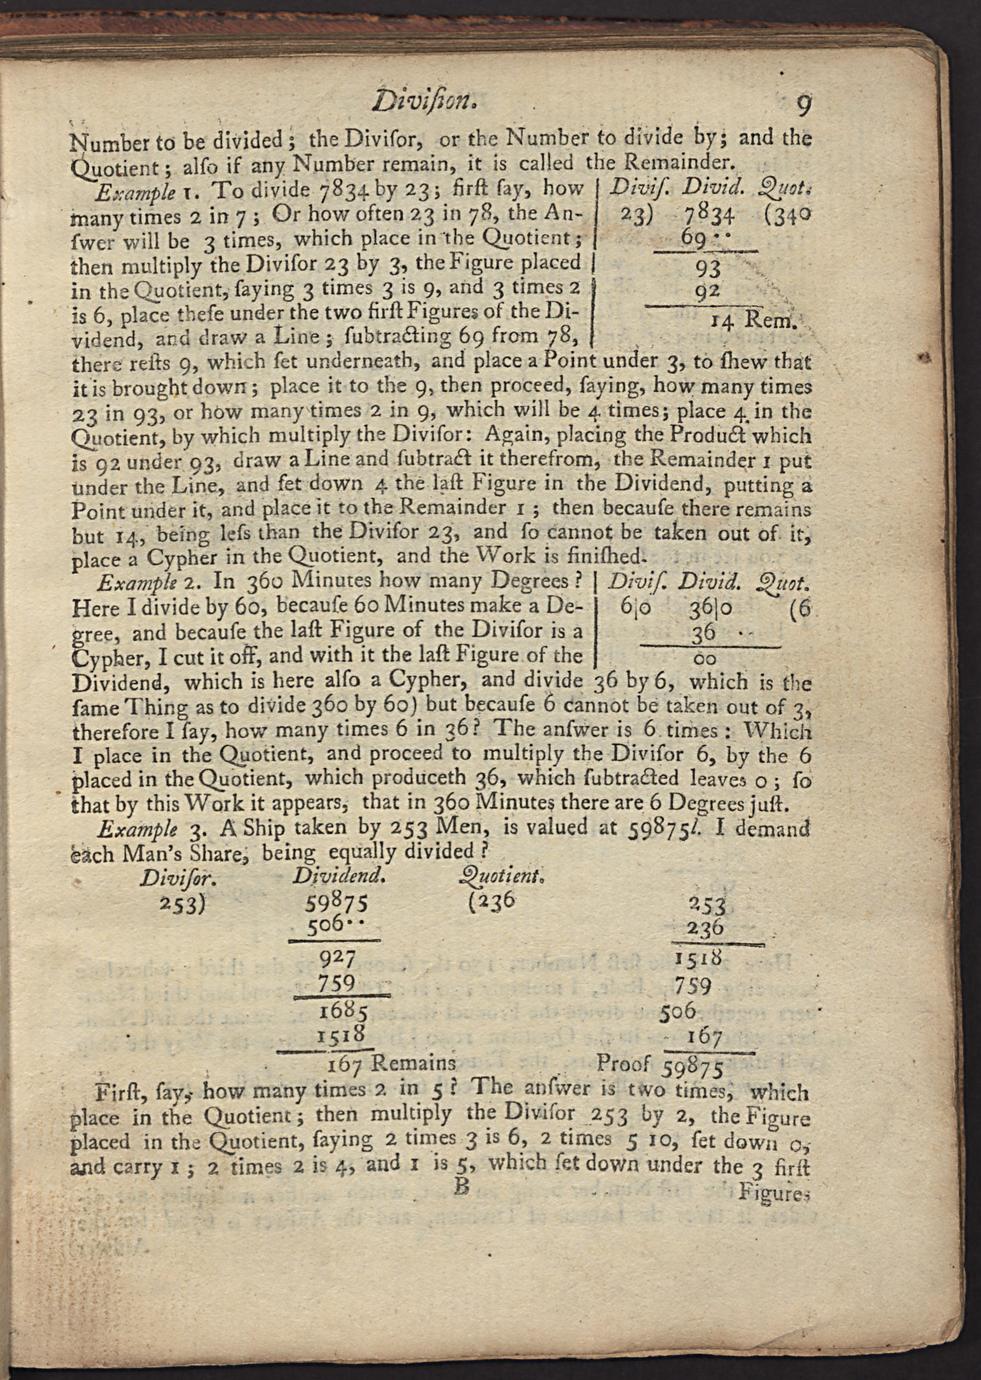 Diviſion. 9
Number to be divided; the Diviſor, or the Number to divide by; and the
Quotient; alſo if any Number remain, it is called the Remainder.
Example 1. To divide 7834 by 23; firſt ſay, how
many times 2 in 7; Or how often 23 in 78, the An-
ſwer will be 3 times, which place in the Quotient;
then multiply the Diviſor 23 by 3, the Figure placed
in the Quotient, ſaying 3 times 3 is 9, and 3 times 2
is 6, place theſe under the two firſt Figures of the Di-
vidend, and draw a Line; ſubtracting 69 from 78,
Diviſ. Divid. Quot.
23) 7834 (340
69··
93
92
14 Rem.
there reſts 9, which ſet underneath, and place a Point under 3, to ſhew that
it is brought down; place it to the 9, then proceed, ſaying, how many times
23 in 93, or how many times 2 in 9, which will be 4 times; place 4 in the
Quotient, by which multiply the Diviſor: Again, placing the Product which
is 92 under 93, draw a Line and ſubtract it therefrom, the Remainder 1 put
under the Line, and ſet down 4 the laſt Figure in the Dividend, putting a
Point under it, and place it to the Remainder 1; then becauſe there remains
but 14, being leſs than the Diviſor 23, and ſo cannot be taken out of it,
place a Cypher in the Quotient, and the Work is finiſhed.
Example 2. In 360 Minutes how many Degrees?
Here I divide by 60, becauſe 60 Minutes make a De-
gree, and becauſe the laſt Figure of the Diviſor is a
Cypher, I cut it off, and with it the laſt Figure of the
Diviſ. Divid. Quot.
6|0 36|0 (6
36 ··
00
Dividend, which is here alſo a Cypher, and divide 36 by 6, which is the
ſame Thing as to divide 360 by 60) but becauſe 6 cannot be taken out of 3,
therefore I ſay, how many times 6 in 36? The anſwer is 6 times: Which
I place in the Quotient, and proceed to multiply the Diviſor 6, by the 6
placed in the Quotient, which produceth 36, which ſubtracted leaves 0; ſo
that by this Work it appears, that in 360 Minutes there are 6 Degrees juſt.
Example 3. A Ship taken by 253 Men, is valued at 59875l. I demand
each Man's Share, being equally divided?
Diviſor. Dividend. Quotient.
253) 59875 (236
506··
927
759
1685
1518
167 Remains
253
236
1518
759
506
167
Proof 59875
Firſt, ſay, how many times 2 in 5? The anſwer is two times, which
place in the Quotient; then multiply the Diviſor 253 by 2, the Figure
placed in the Quotient, ſaying 2 times 3 is 6, 2 times 5 10, ſet down 0,
and carry 1; 2 times 2 is 4, and 1 is 5, which ſet down under the 3 firſt
B Figures